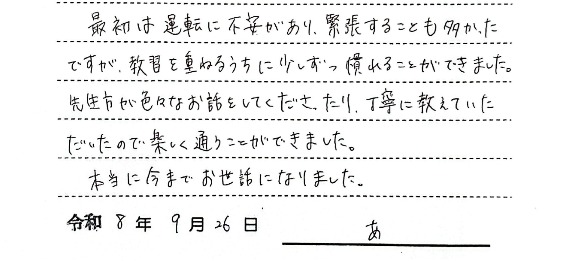 最初は運転に不安があり、緊張することも多かった
ですが、教習を重ねるうちに少しずつ慣れることができました。
先生方が色々なお話をしてくださったり、丁寧に教えていた
だいたので楽しく通うことができました。
本当に今までお世話になりました。
令和 8 年 9 月 26 日 あ